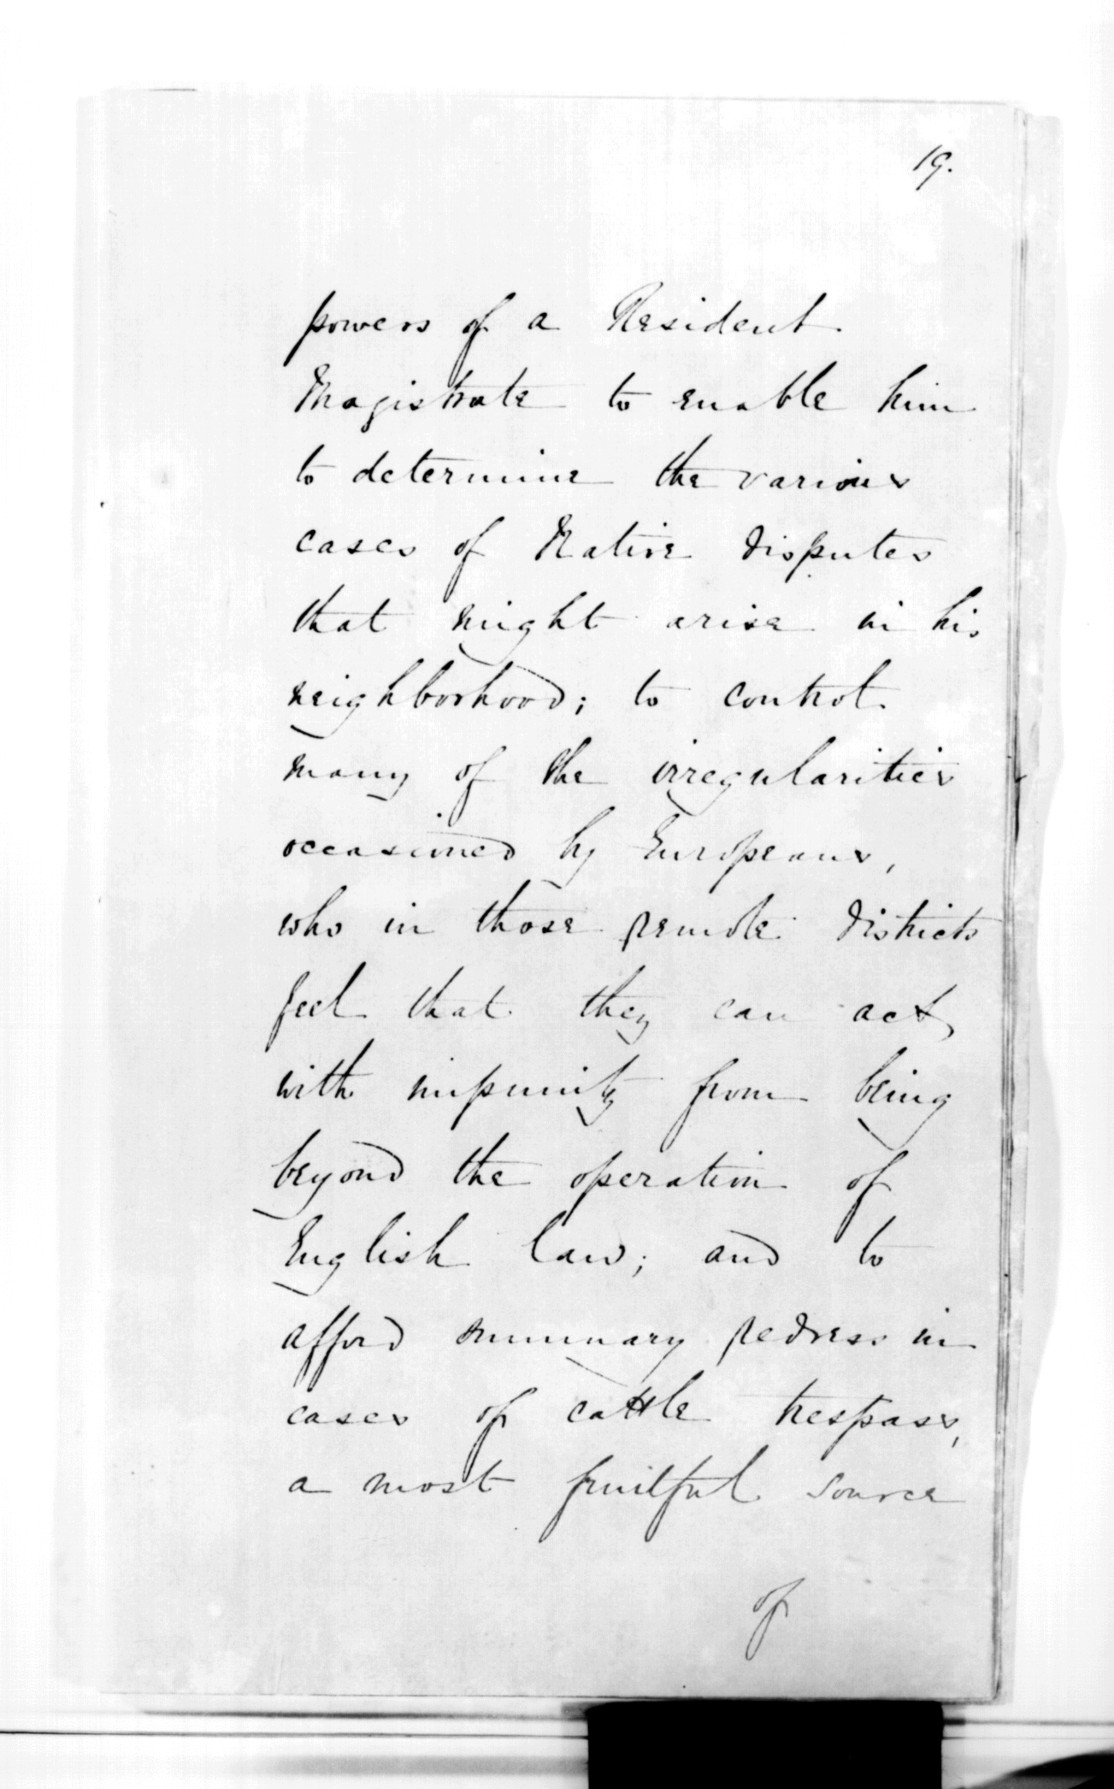 19.
powers of a Resident
Magistrate to enable him
to determine the various
cases of Native disputes
that might arise in his
neighborhood; to control
many of the irregularities
occasioned by Europeans,
who in those remote districts
feel that they can act,
with impunity from being
beyond the operation of
English law; and to
afford summary redress in
cases of cattle trespass,
a most fruitful source
of